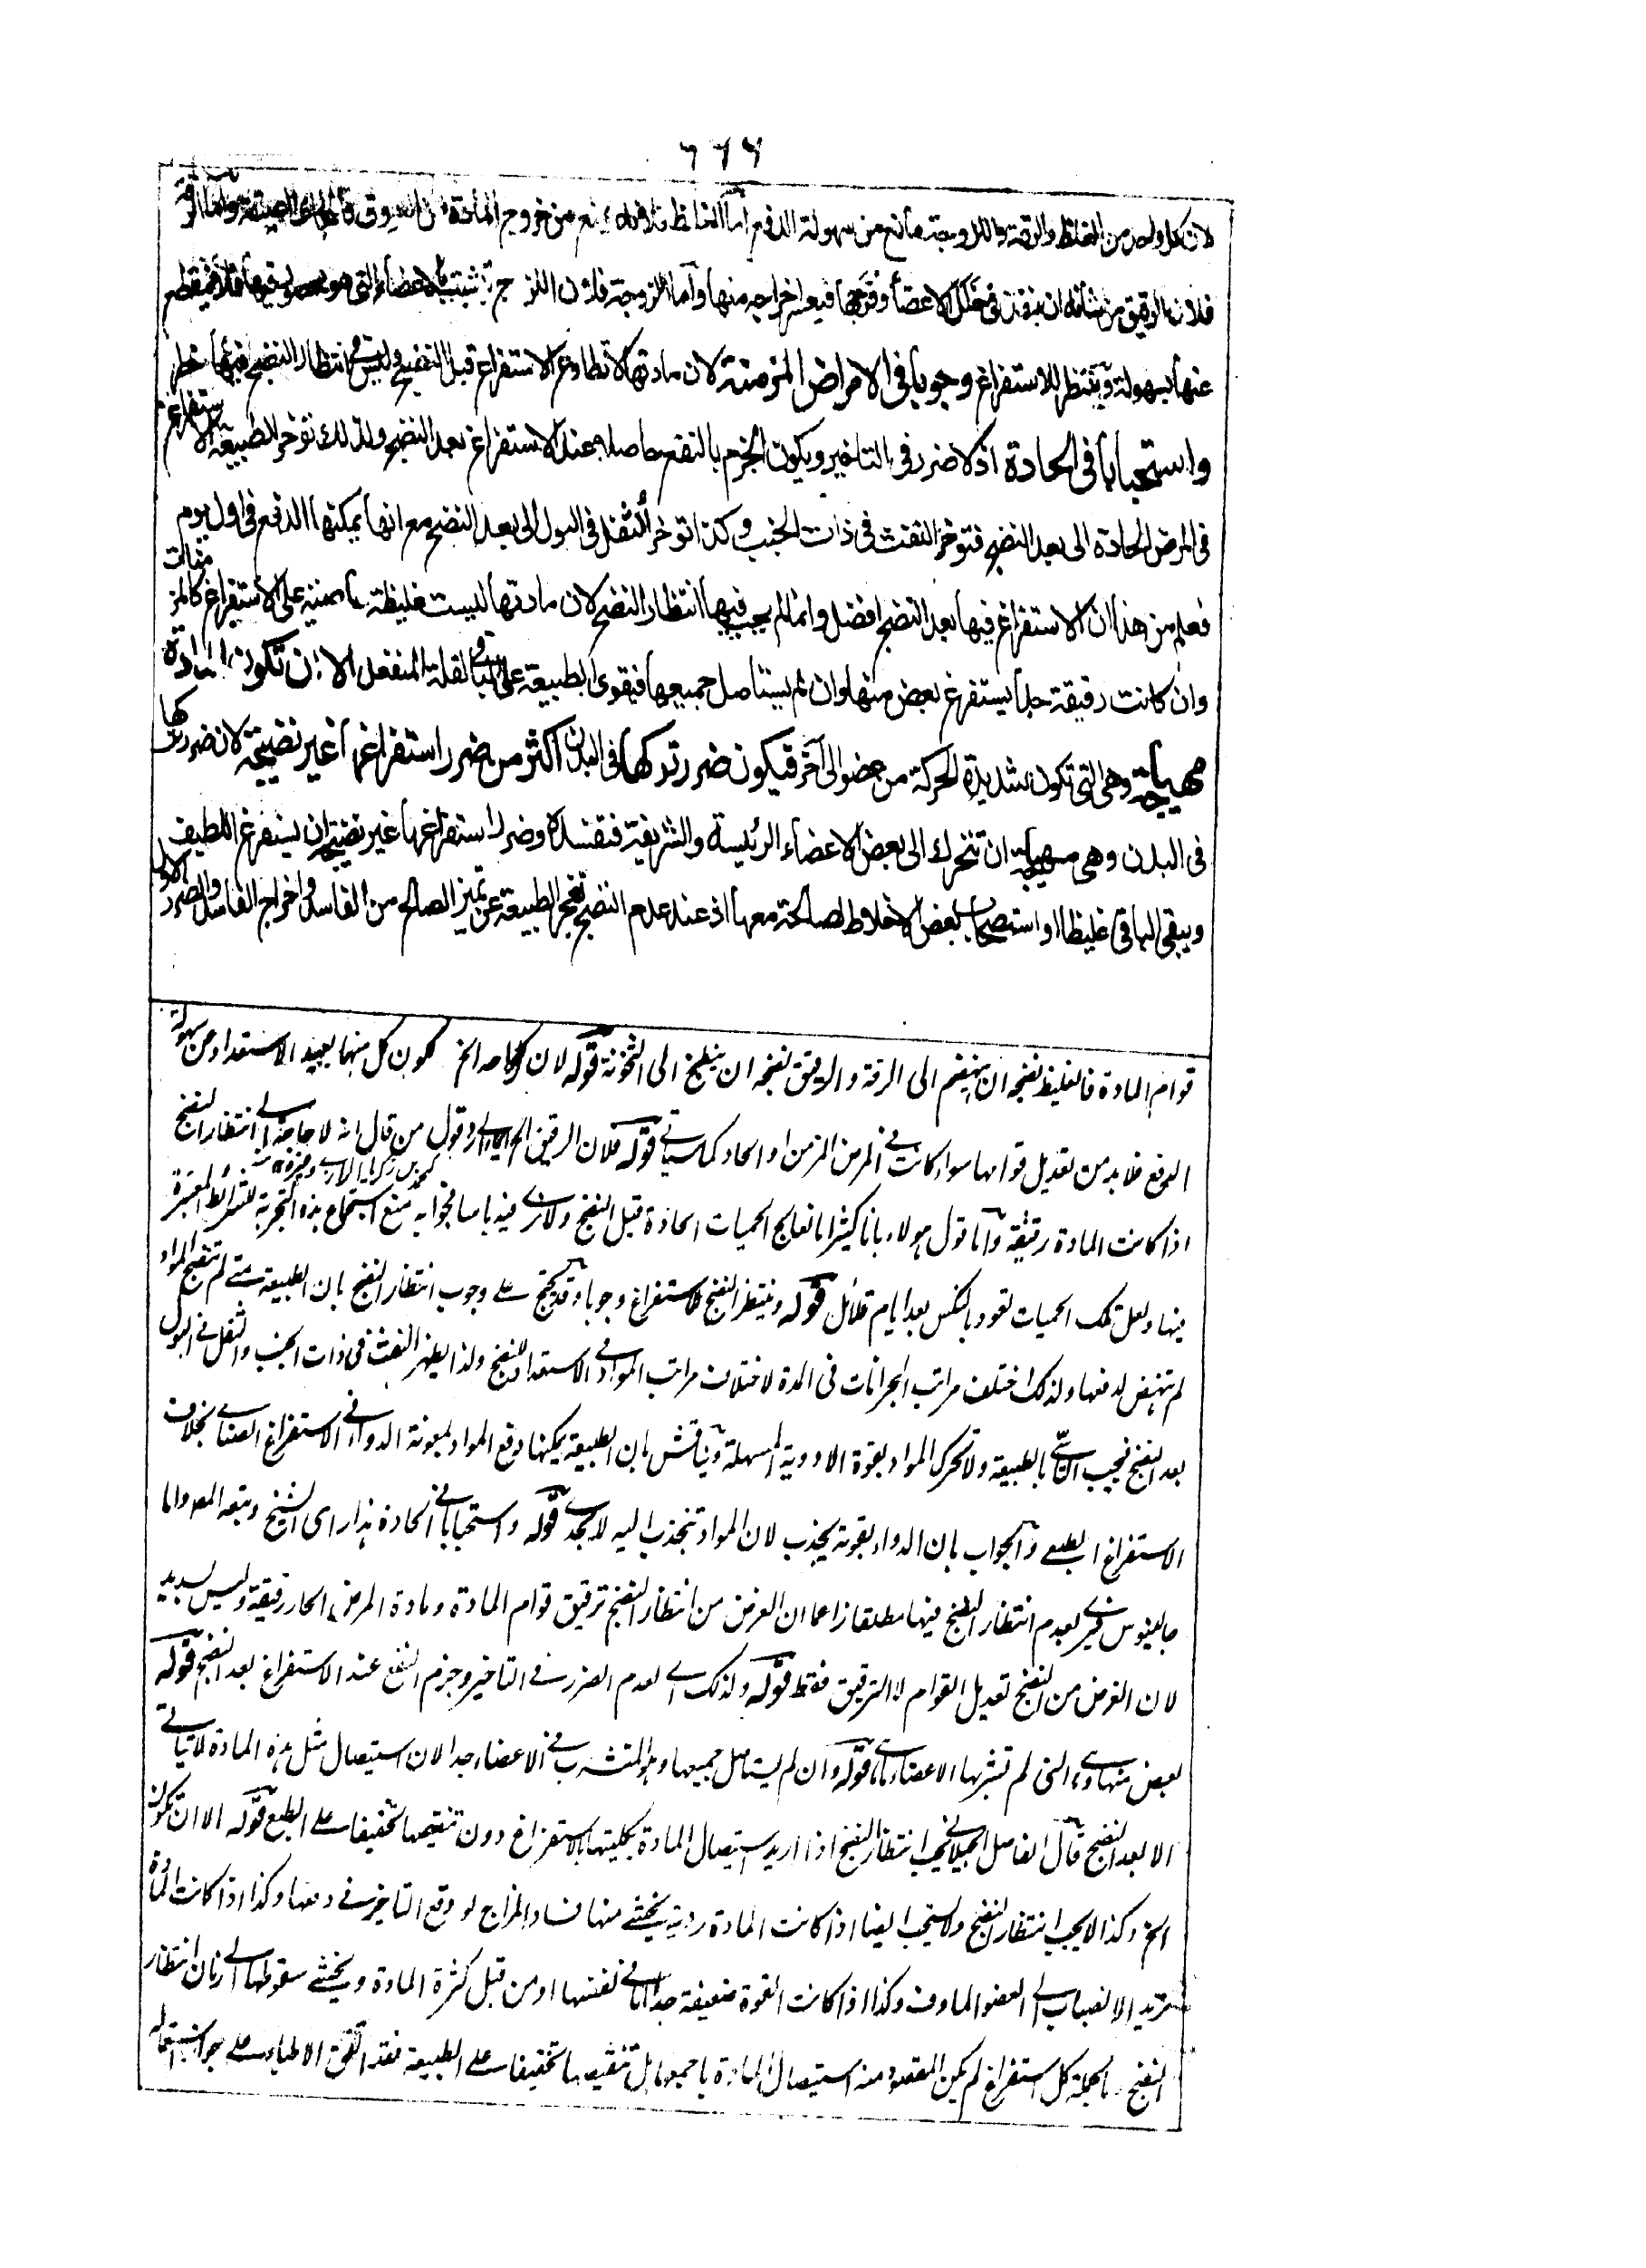 ٦٦٦
لان كل واحد من الغلظ والرقة واللزوجة مانع من سهولة الدفع اما الغلظ فلانه يمنع من خروج المادة من العروق واما الرقة
فلان الرقيق من شأنه ان ينفذ في خلل الاعضاء وفرجها فيعسر اخراجه منها واما اللزوجة فلان اللزج يتشبث بالاعضاء التي هو فلا ينقطع
عنها بسهولة وينتظر للاستفراغ وجوبا في الامراض المزمنة لان مادتها لا تطاوع الاستفراغ قبل النضج وليس في انتظار النضج فيها خطر
واستحبابا في الحادة اذ لا ضرر في التاخير ويكون الجزم بالنفع حاصلا عند الاستفراغ بعد النضج ولذلك توخر الطبيعة الاستفراغ
في المرض الحادة الى بعد النضج فتوخر النفث في ذات الجنب وكذا توخر الثفل في البول الى بعد النضج مع انها يمكنها الدفع في اول يوم
فعلم من هذا ان الاستفراغ فيها بعد النضج افضل وانما لم يجب فيها انتظار النضج لان مادتها ليست غليظة على الاستفراغ كالمزمنات
وان كانت رقيقة جدا يستفرغ بعض منها وان لم يستاصل جميعها فيقوى الطبيعة على الباقي لقلة المنفعل الا ان تكون المادة
مهياجة وهي التي تكون شديدة الحركة من عضو الى آخر فيكون ضرر تركها في البدن اكثر من ضرر استفراغها غير نضيجة لان ضرر تركها
في البدن وهي مهياجة ان تتحرك الى بعض الاعضاء الرئيسة والشريفة فتفسده وضرر استفراغها غير نضيجة ان يستفرغ اللطيف
ويبقى الباقي غليظا او استصحاب بعض الاخلاط الصالحة معها اذ عند عدم النضج تعجز الطبيعة عن تميز الصالح من الفاسد واخراج الفاسد والضرر الاول
قوام المادة فالغليظ نضجه ان ينهضم الى الرقة والرقيق نضجه ان ينطبخ الى الثخونة قوله لان كل واحد الخ لكون كل منها بعيد الاستعداد من سهولة
الدفع فلا بد من تعديل قوامها سواء كانت في المرض المزمن او الحاد كما سياتي قوله فلان الرقيق الخ رد قول من قال انه لا حاجة الى انتظار النضج
محمد بن زكريا الرازي وغيره
اذا كانت المادة رقيقة واما قول هولاء بانا كثيرا ما نعالج الحميات الحادة قبل النضج ولا نرى فيه باسا فجوابه منع استجماع هذه التجربة للشرائط المعتبرة
فيها ولعل تلك الحميات تعود بالنكس بعد ايام قلائل قوله وينتظر النضج للاستفراغ وجوبا وقد يحتج على وجوب انتظار النضج بان الطبيعة متى لم تنضج المواد
لم تنهض لدفعها ولذلك اختلف مراتب البحرانات في المدة لاختلاف مراتب المواد في الاستعداد للنضج ولذا يظهر النفث في ذات الجنب والثفل في البول
بعد النضج فيجب التأسي بالطبيعة ولا تحرك المواد بقوة الادوية المسهلة ويناقش بان الطبيعة يمكنها دفع المواد بمعونة الدواء في الاستفراغ الصناعي بخلاف
الاستفراغ الطبيعي والجواب بان الدواء بقوته يجذب لان المواد تنجذب اليه لا يجدي قوله واستحبابا في الحادة هذا راى الشيخ وتبعه المصـ واما
جالينوس فخير لعدم انتظار النضج فيها مطلقا زاعما ان الغرض من انتظار النضج ترقيق قوام المادة ومادة المرض الحار رقيقة وليس بسديد
لان الغرض من النضج تعديل القوام لا الترقيق فقط قوله ولذلك اى لعدم الضرر في التاخير وجزم النفع عند الاستفراغ بعد النضج قوله
بعض منها وهي التي لم تشربها الاعضاء قوله وان لم يستاصل جميعها وهو المتشرب في الاعضاء جدا لان استيصال مثل هذه المادة لا يتاتى
الا بعد النضج قال الفاضل الجيلاني يجب انتظار النضج اذا اريد استيصال المادة بكليتها بالاستفراغ دون تنقيصها تخفيفا على الطبع قوله الا ان تكون
الخ وكذا لا يجب انتظار النضج ولا يستحب ايضا اذا كانت المادة ردية يخشى منها فساد المزاج لو وقع التاخير في دفعها وكذا اذا كانت المادة
الانصباب الى العضو الماوف وكذا اذا كانت القوة ضعيفة جدا اما في نفسها او من قبل كثرة المادة ويخشى سقوطها الى زمان انتظار
النضج بالجملة كل استفراغ لم يكن المقصود منه استيصال المادة باجمعها بل تنقيصها تخفيفا على الطبيعة فقد اتفق الاطباء على جواز